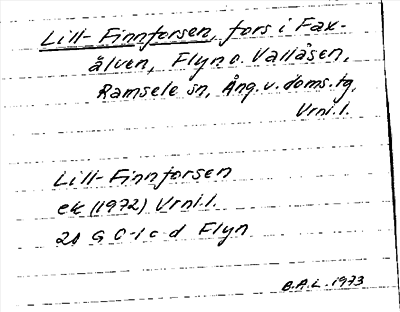 Lill-Finnforsen, fors i Fax-
älven, Flyn o. Vallåsen,
Ramsele sn, Ång.v.doms.tg,
Vrnl.l.
Lill-Finnforsen
ek (1972) Vrnl.l.
20 G 0-1 c-d Flyn
B.A.L. 1973